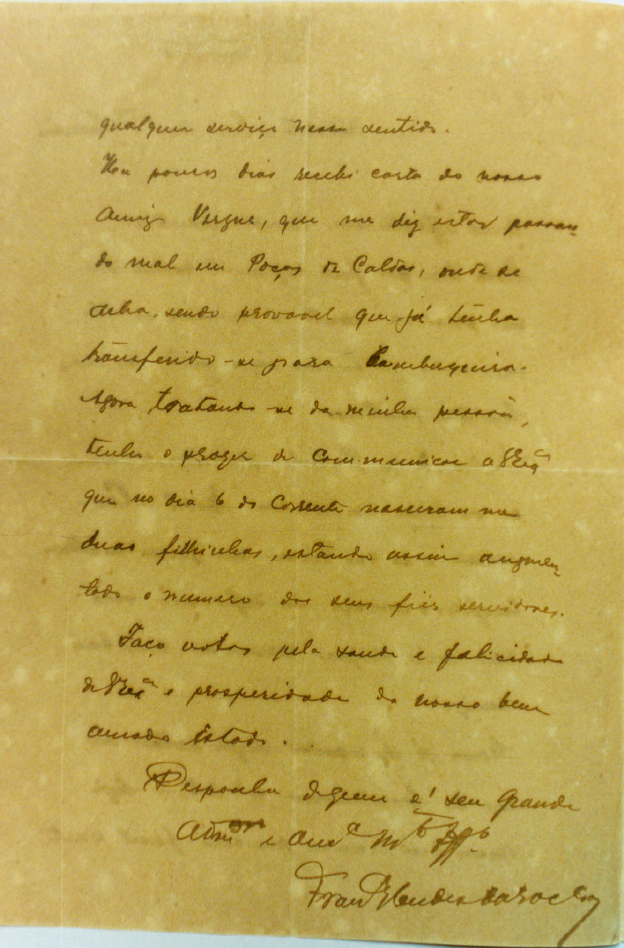 qualquer serviço nesse sentido.
Ha poucos dias recebi carta do nosso
amigo Vergne, que me diz estar passan-
do mal em Poços de Caldas, onde se
acha, sendo provavel que já tenha
transferido-se para Cambuquira.
Agora tratando-se da minha pessôa,
tenho o prazer de communicar a VExª
que no dia 6 do corrente nasceram-me
duas filhinhas, estando assim augmen-
tado o numero dos seus fieis servidores.
Faço votos pela saude e felicidade
de VExª e prosperidade do nosso bem
amado Estado.
Disponha de quem é seu grande
Admor e amº mtº
Franc Mendes da Rocha